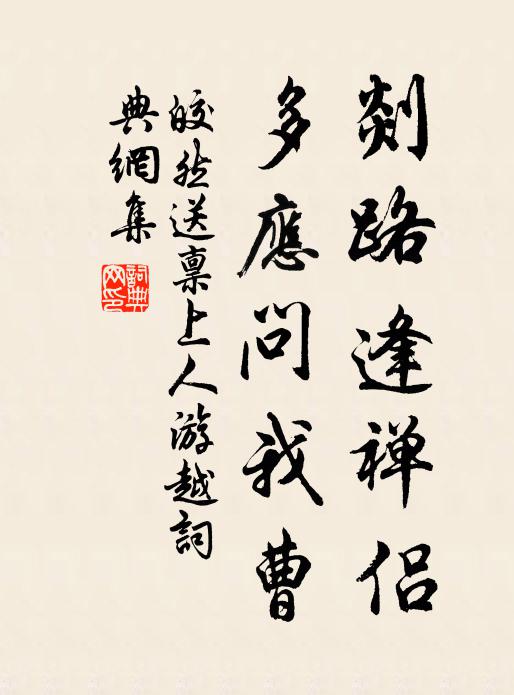 剡路逢禅侣
多應問我曹
皎然送稟上人游越詞
典網集
詞典
网印